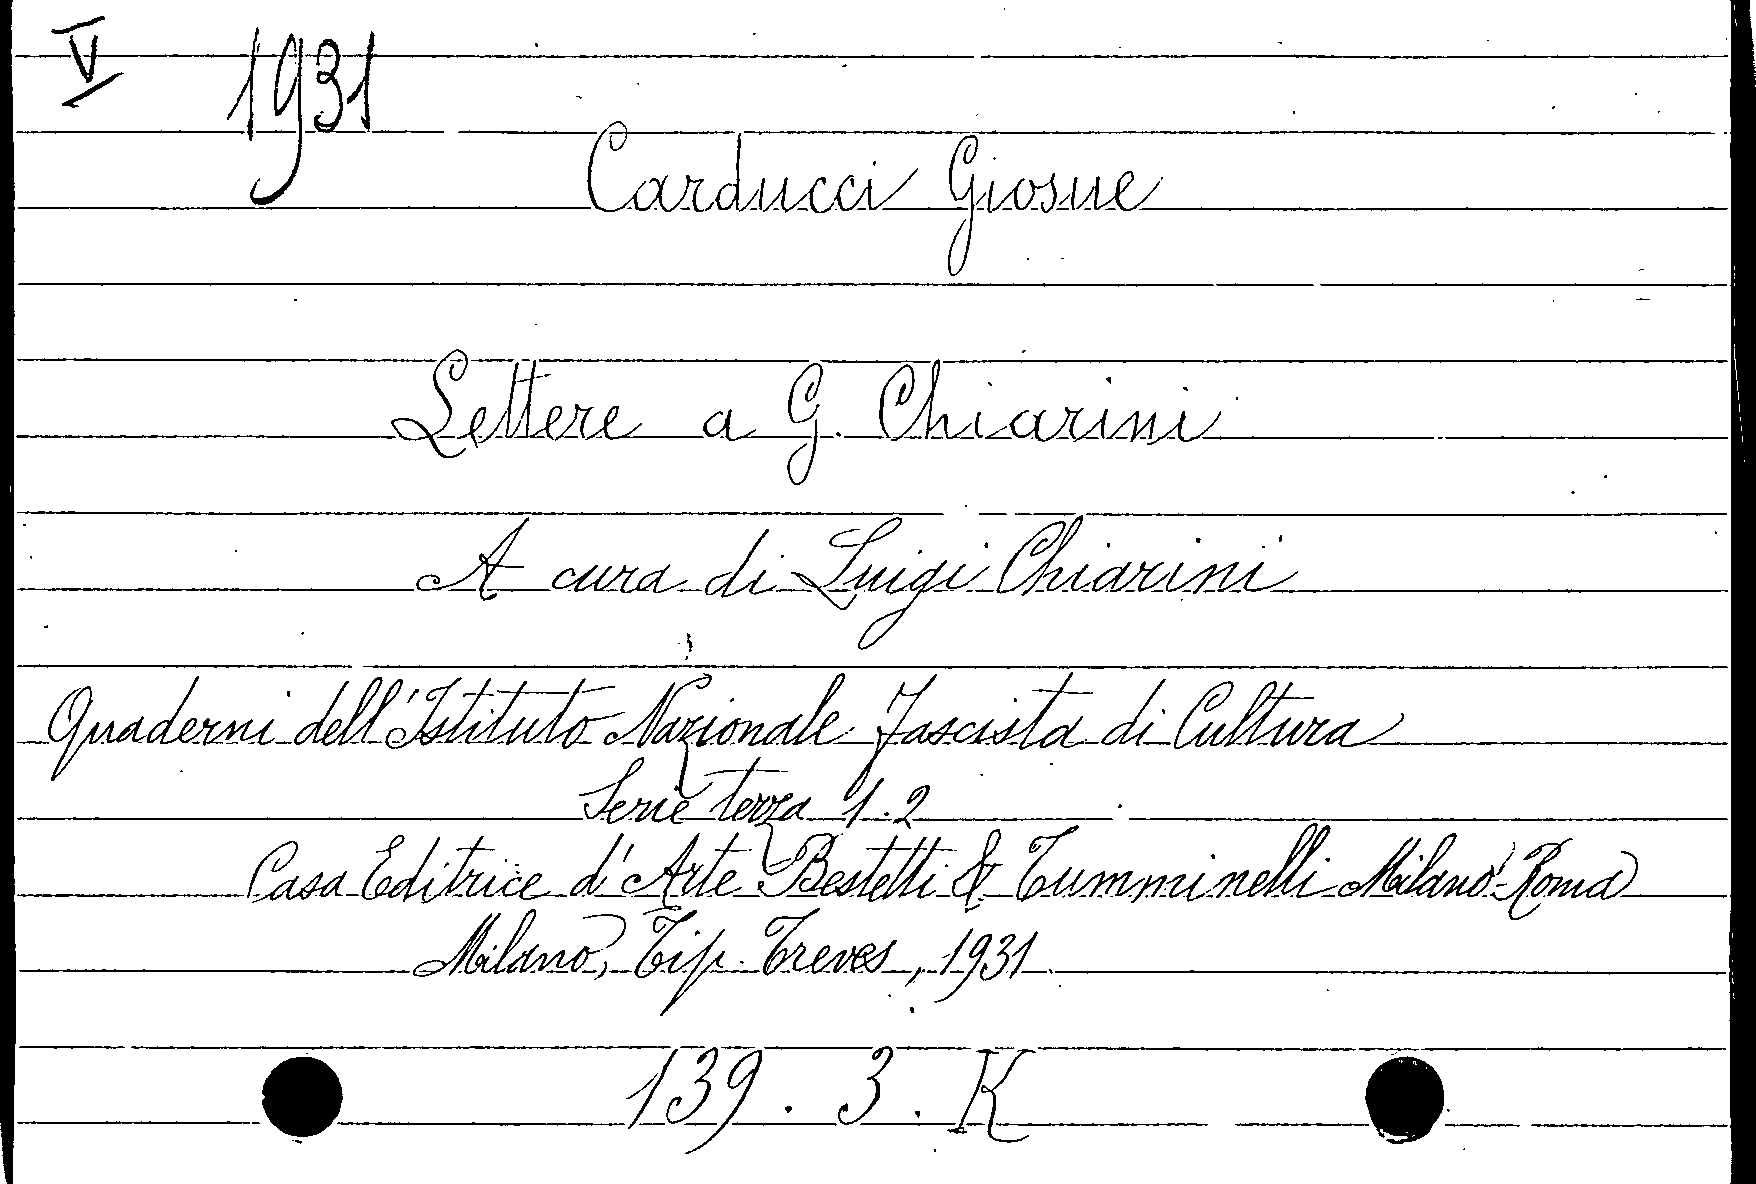 V 1931
Carducci Giosue
Lettere a G. Chiarini
A cura di Luigi Chiarini
Quaderni dell'Istituto Nazionale Fascista di Cultura
Serie terza 1.2
Casa Editrice d'Arte Bestetti & Tumminelli Milano-Roma
Milano, Tip. Treves, 1931
139. 3. K